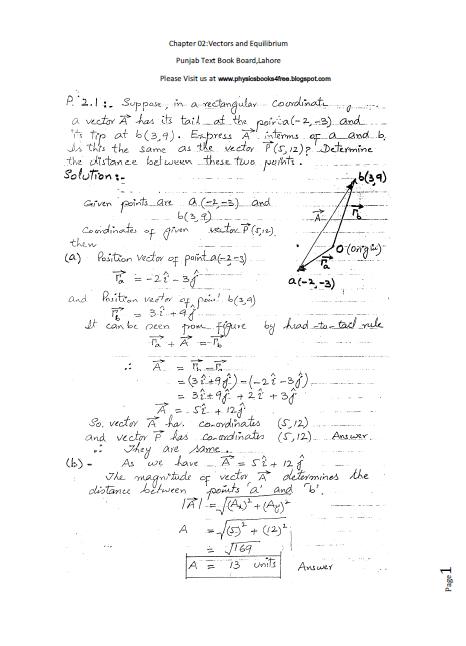 Chapter 02:Vectors and Equilibrium
Punjab Text Book Board,Lahore
Please Visit us at www.physicsbooks4free.blogspot.com
P. 2.1:- Suppose, in a rectangular coordinate
a vector A⃗ has its tail at the point a(-2,-3) and
its tip at b(3,9). Express A⃗ interms of a and b.
Is this the same as the vector P⃗(5,12)? Determine
the distance between these two points.
Solution:-
b(3,9)
Given points are a(-2,-3) and
b(3,9)
A⃗
r⃗b
Coordinates of given vector P⃗(5,12)
then
O(origin)
(a) Position vector of point a(-2,-3)
r⃗a
r⃗a = -2î - 3ĵ
a(-2,-3)
and Position vector of point b(3,9)
r⃗b = 3î + 9ĵ
It can be seen from figure by head-to-tail rule
r⃗a + A⃗ = r⃗b
∴ A⃗ = r⃗b - r⃗a
= (3î+9ĵ) - (-2î-3ĵ)
= 3î+9ĵ + 2î + 3ĵ
A⃗ = 5î + 12ĵ
So, vector A⃗ has co-ordinates (5,12)
and vector P⃗ has co-ordinates (5,12) Answer.
∴ They are same.
(b)- As we have A⃗ = 5î + 12ĵ
The magnitude of vector A⃗ determines the
distance between points 'a' and 'b'.
|A⃗| = √(Ax)² + (Ay)²
A = √(5)² + (12)²
= √169
A = 13 units Answer
Page 1